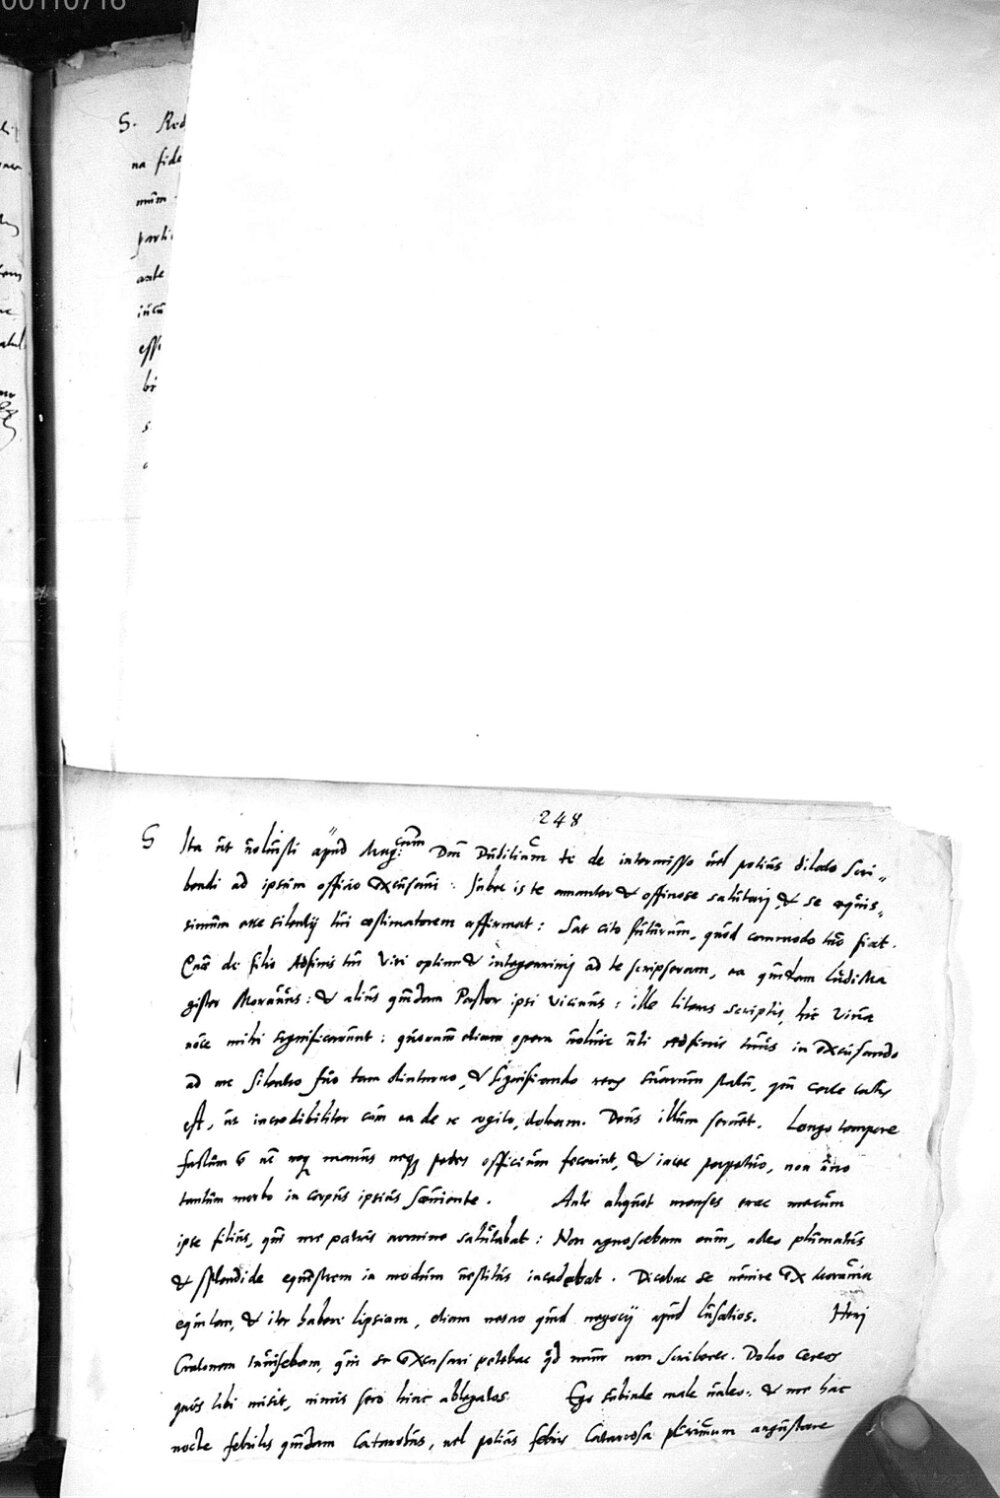 00110716
S. Red
na fide
mum
parti
ante
esse
bi
248
S Ita ut voluisti apud Mag.cum Dm Duditium te de intermisso vel potius dilato scri„
bendi ad ipsum officio excusavi: Jubet is te amanter & officiose salutari, & se aequis„
simum esse silentij tui aestimatorem affirmat: Sat cito futurum, quod commodo tuo fiat.
Quae de filio Adfinis tui viri optimi & integerrimi ad te scripseram, ea quidam Ludi Ma
gister Moravus: & alius quidam Pastor ipsi vicinus: ille literis scriptis, hic viva
voce mihi significarunt: quorum etiam opera voluit uti Adfinis tuus in excusando
ad me silentio suo tam diuturno, & significando rerum suarum statu, qui certe talis
est, ut incredibiliter cum ea de re cogito, doleam. Deus illum servet. Longo tempore
factum e ut neq manus neq pedes officium fecerint, & iacet perpetuo, non uno
tantum morbo in corpus ipsius saeviente. Ante aliquot menses erat mecum
ipse filius, qui me patris nomine salutabat: Non agnoscebam eum, adeo plumatus
& splendide equestrem in modum vestitus incedebat. Dicebat se venire ex Moravia
equitem, & iter habere Lipsiam, etiam nescio quid negocij apud Lusatios. Heri
Cratonem invisebam, qui se excusari petebat qd nunc non scriberet. Doleo cereos
quos tibi misit, nimis sero hinc ablegatos. Ego subinde male valeo: & me hac
nocte febrilis quidam Catarrhus, vel potius febris Catarrosa plurimum angustare